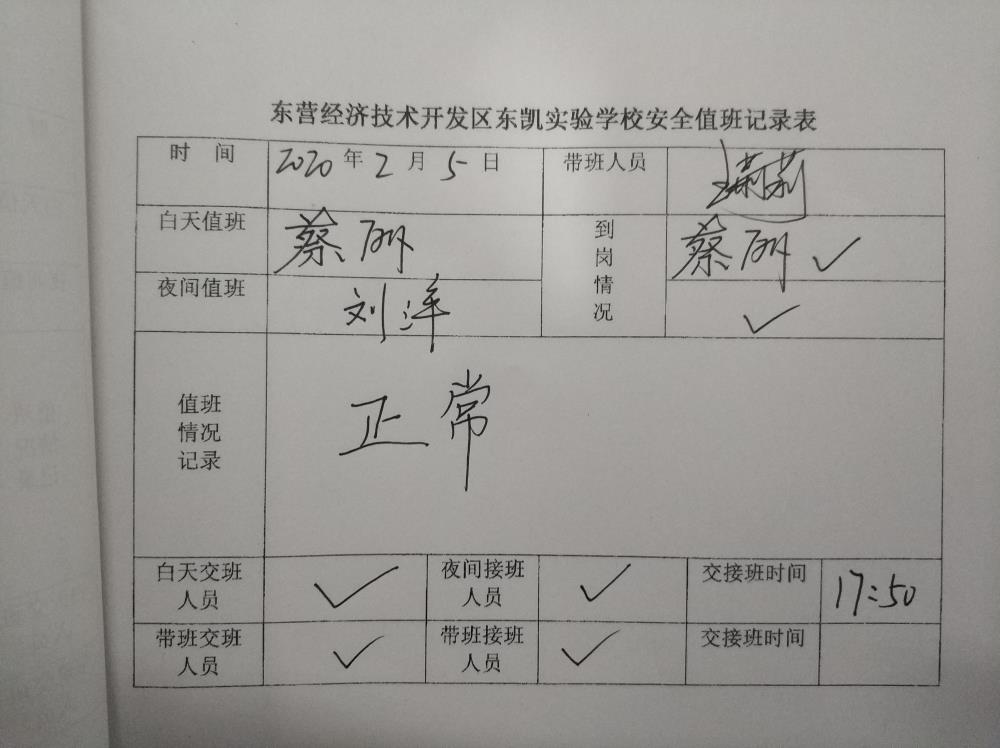 东营经济技术开发区东凯实验学校安全值班记录表
时 间 2020 年 2 月 5 日 带班人员
白天值班 蔡丽 到岗情况 蔡丽 ✓
夜间值班 刘洋 ✓
值班情况记录 正常
白天交班人员 ✓ 夜间接班人员 ✓ 交接班时间 17:50
带班交班人员 ✓ 带班接班人员 ✓ 交接班时间